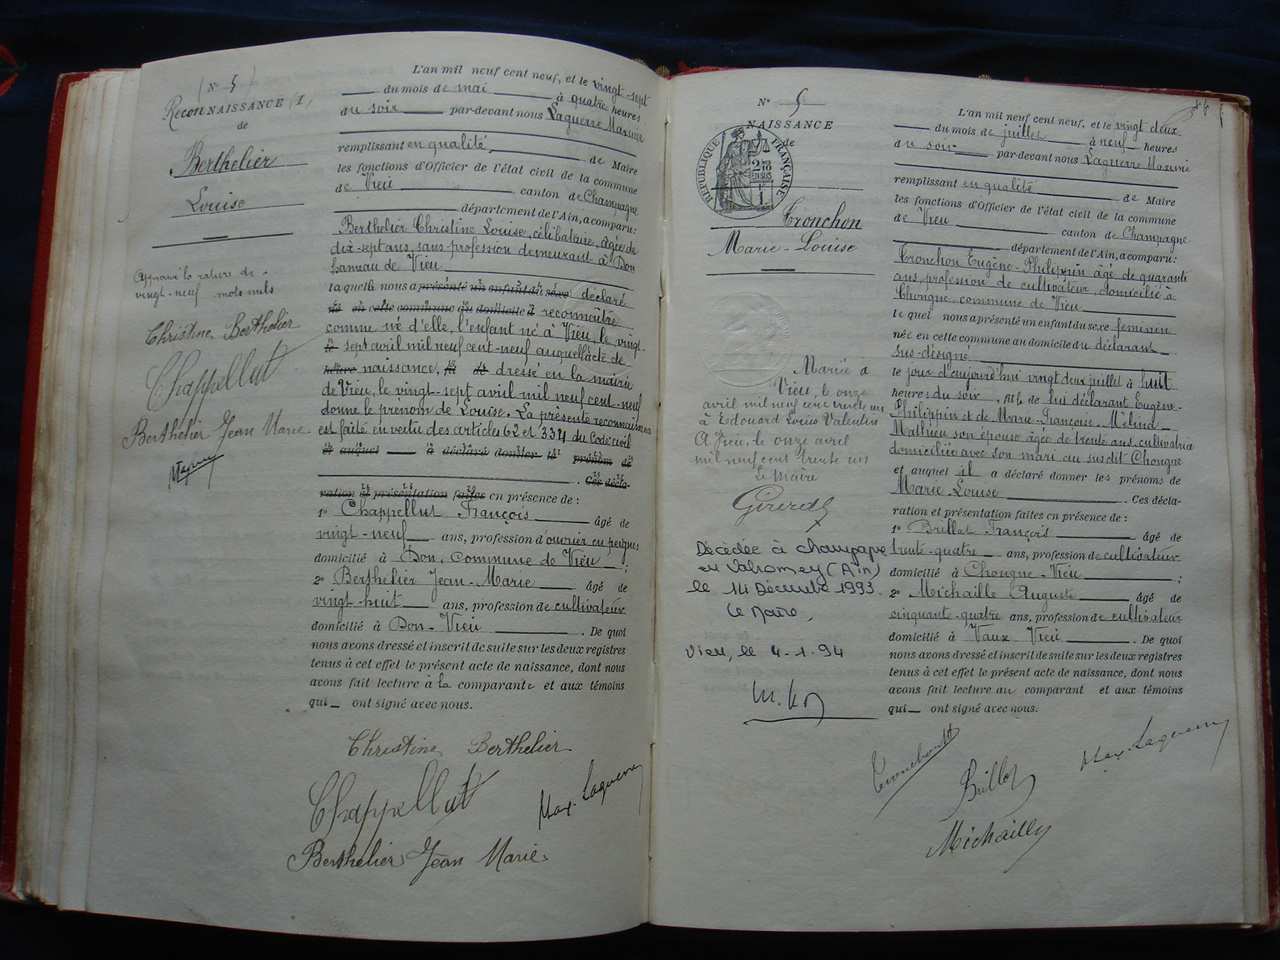 (N° 5)
ReconNAISSANCE (I
de
Berthelier
Louise
Approuvé la rature de
vingt-neuf mots nuls
Christine Berthelier
Chappellut
Berthelier Jean Marie
L'an mil neuf cent neuf, et le vingt-sept
du mois de mai à quatre heures
du soir par-devant nous Laguerre Maxime
remplissant en qualité de Maire
les fonctions d'Officier de l'état civil de la commune
de Vieu canton de Champagne
département de l'Ain, a comparu:
Berthelier Christine Louise, célibataire, âgée de
dix-sept ans, sans profession demeurant à Don
hameau de Vieu
laquelle nous a présenté un enfant du sexe déclaré
né en cette commune au domicile d reconnaître
comme né d'elle, l'enfant né à Vieu, le vingt-
le sept avril mil neuf cent-neuf auquel l'acte de
naissance, dressé en la mairie
de Vieu, le vingt-sept avril mil neuf cent-neuf
donne le prénom de Louise. La présente reconnaissance
est faite en vertu des articles 62 et 334 du Code civil
et auquel a déclaré donner le prénom de
Ces décla-
ration et présentation faites en présence de :
1° Chappellut François âgé de
vingt-neuf ans, profession d'ouvrier en peignes
domicilié à Don, Commune de Vieu ;
2° Berthelier Jean-Marie âgé de
vingt-huit ans, profession de cultivateur
domicilié à Don-Vieu . De quoi
nous avons dressé et inscrit de suite sur les deux registres
tenus à cet effet le présent acte de naissance, dont nous
avons fait lecture à la comparante et aux témoins
qui ont signé avec nous.
Christine Berthelier
Chappellut
Max. Laguerre
Berthelier Jean Marie
N° 5
NAISSANCE
de
RÉPUBLIQUE FRANÇAISE
Tronchon
Marie-Louise
Mariée à
Vieu, le onze
avril mil neuf cent trente un
à Edouard Louis Valentin
A Vieu, le onze avril
mil neuf cent trente un
Le Maire
Décédée à Champagne
en Valromey (Ain)
le 14 Décembre 1993.
Le Maire,
Vieu, le 4-1-94
L'an mil neuf cent neuf, et le vingt deux
du mois de juillet à neuf heures
du soir par-devant nous Laguerre Maxime
remplissant en qualité de Maire
les fonctions d'Officier de l'état civil de la commune
de Vieu canton de Champagne
département de l'Ain, a comparu:
Tronchon Eugène-Philippin âgé de quarante
ans, profession de cultivateur domicilié à
Chongne, commune de Vieu
lequel nous a présenté un enfant du sexe féminin
née en cette commune au domicile du déclarant
sus-désigné
le jour d'aujourd'hui vingt deux juillet à huit
heures du soir, fille de lui déclarant Eugène-
Philippin et de Marie-Françoise-Mélina
Mathieu son épouse âgée de trente ans, cultivatrice
domiciliée avec son mari au susdit Chongne
et auquel il a déclaré donner les prénoms de
Marie Louise . Ces décla-
ration et présentation faites en présence de :
1° Brillat François âgé de
trente-quatre ans, profession de cultivateur
domicilié à Chongne-Vieu ;
2° Michaille Auguste âgé de
cinquante-quatre ans, profession de cultivateur
domicilié à Vaux Vieu . De quoi
nous avons dressé et inscrit de suite sur les deux registres
tenus à cet effet le présent acte de naissance, dont nous
avons fait lecture au comparant et aux témoins
qui ont signé avec nous.
Tronchon
Max. Laguerre
Brillat
Michaille